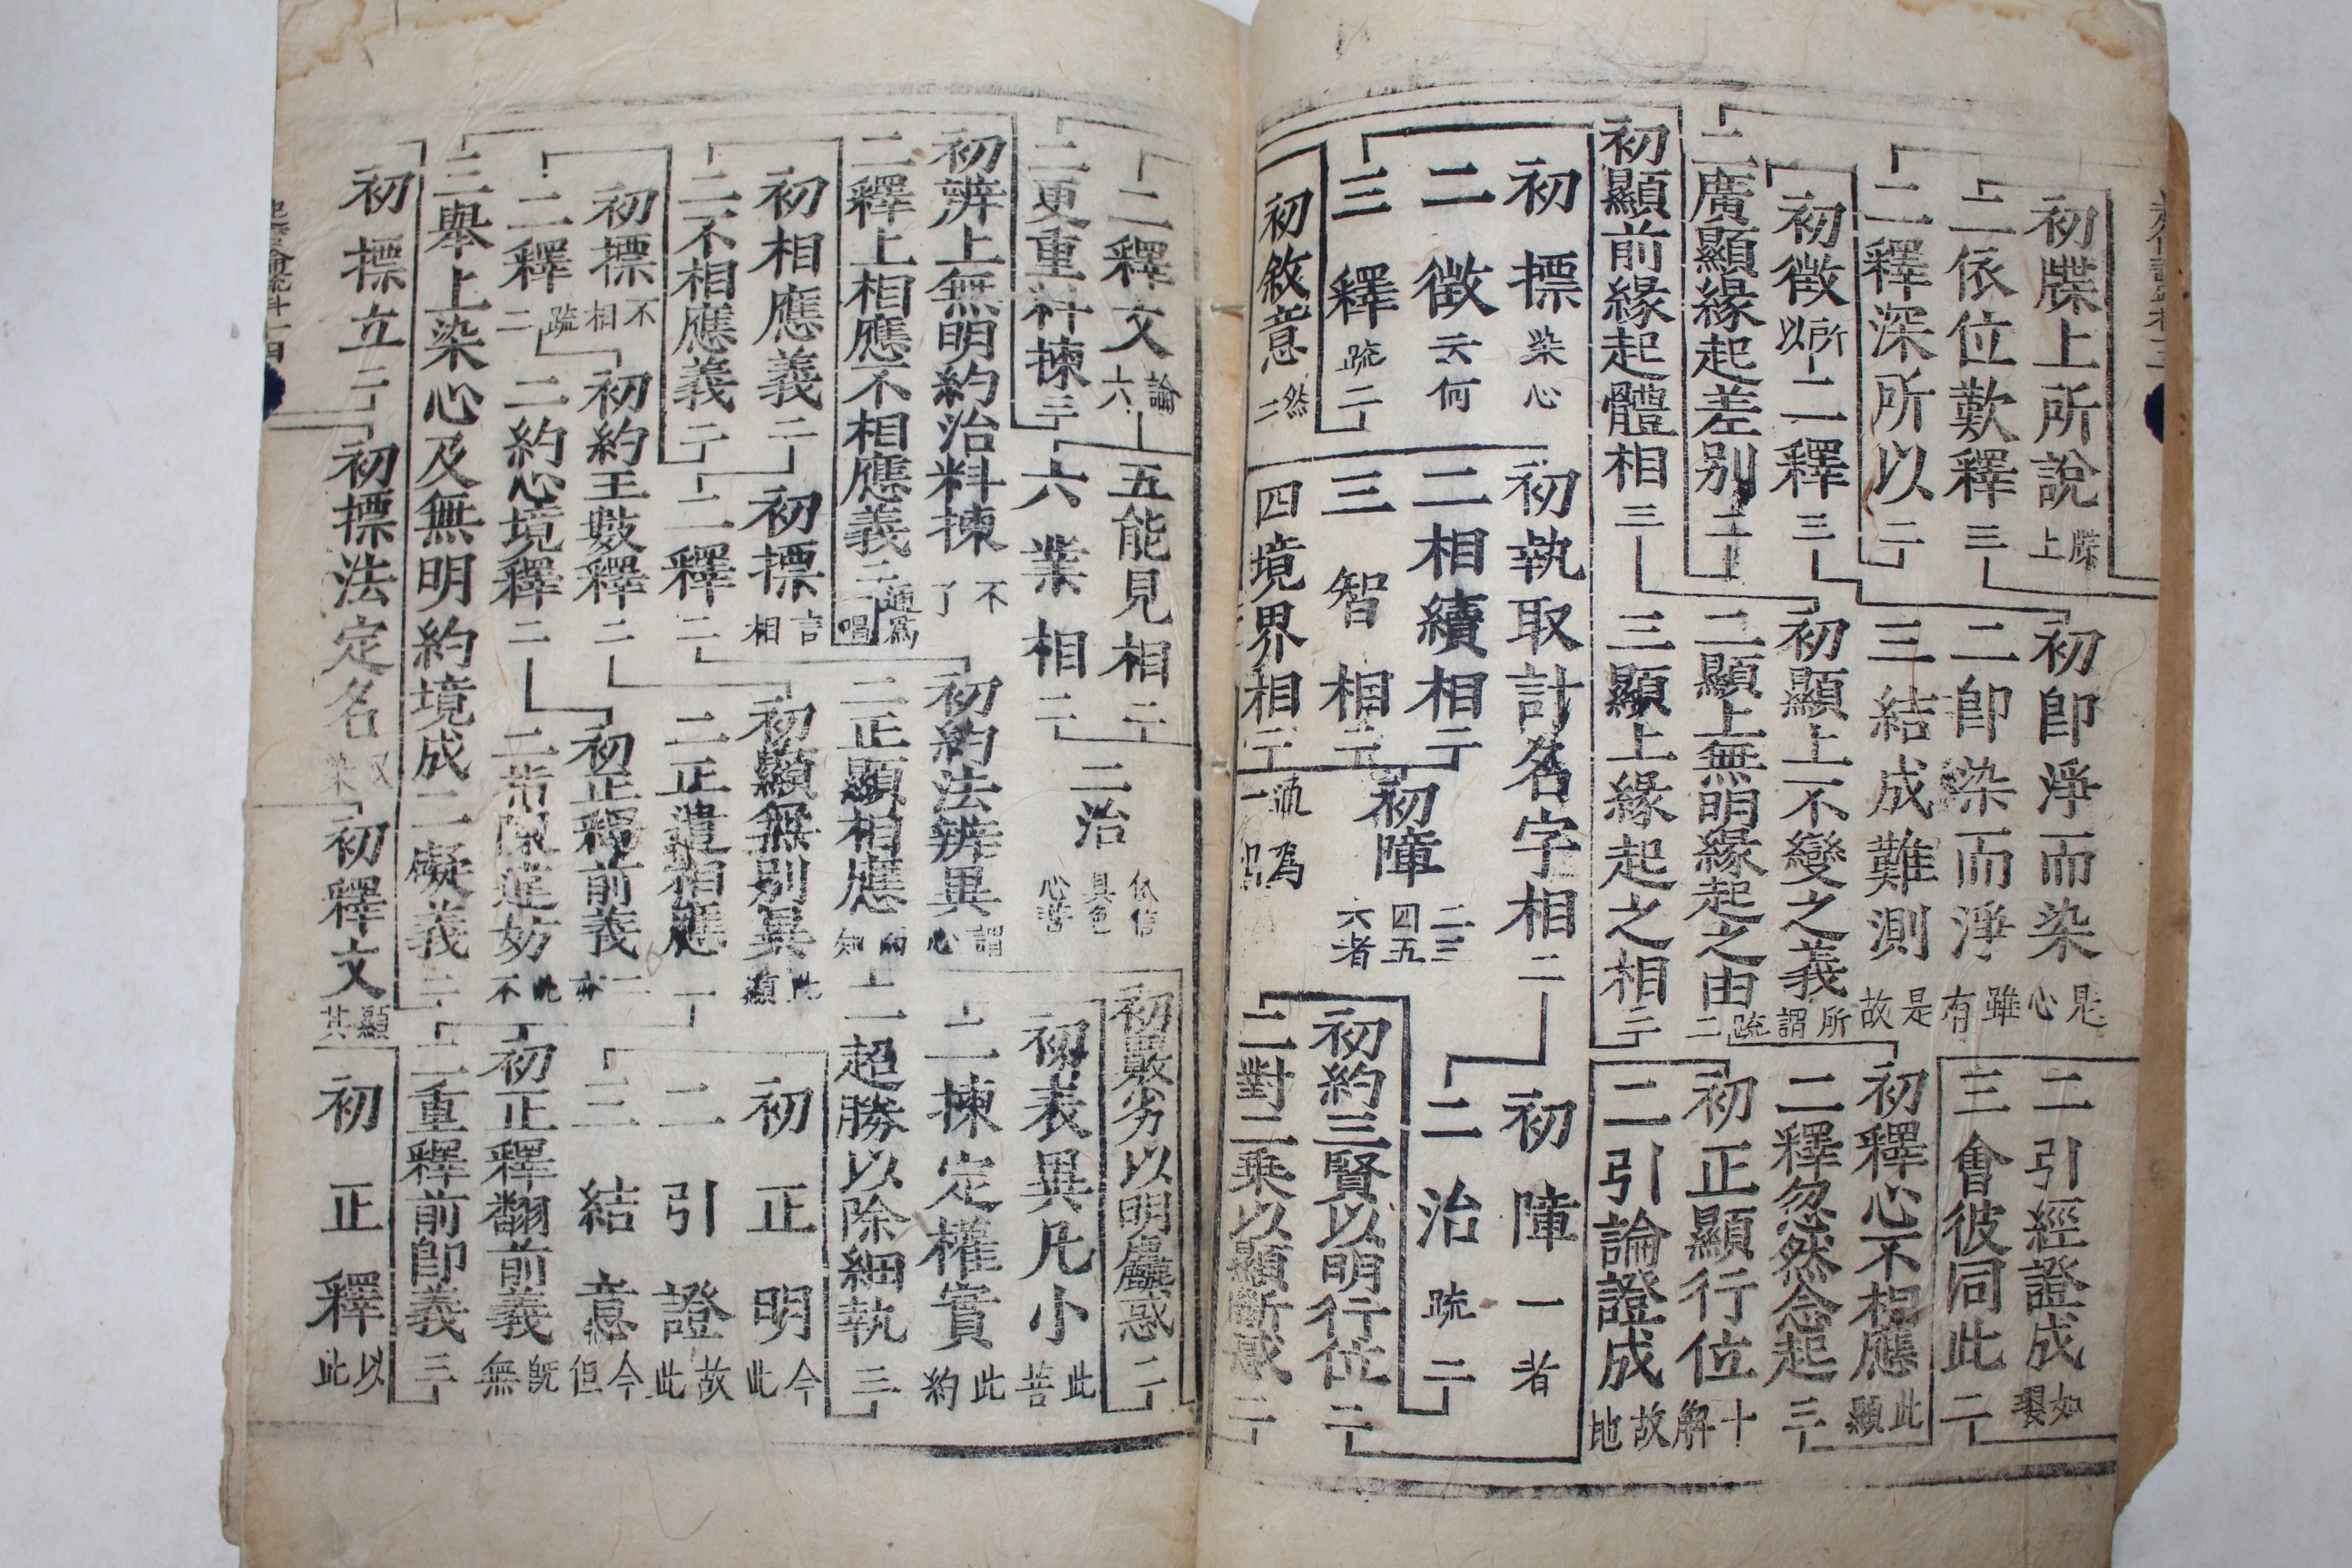 初牒上所說 牒上
二依位歎釋 三
二釋深所以 二
初徵 所以
二釋 三
二廣顯緣起差別 二
初顯前緣起體相 三
初標 染心
二徵 云何
三釋 疏二
初敘意 然二
初即淨而染 是心
二即染而淨 雖有
三結成難測 是故
初顯上不變之義 所謂
二顯上無明緣起之由 疏二
三顯上緣起之相 二
初執取計名字相 二
二相續相 二
三智相 二
四境界相 二
初障 二三四五六者
二引經證成 如
三會彼同此 二
初釋心不相應 此顯
二釋忽然念起 三
初正顯行位 十解
二引論證成 故地
初障 一者
二治 疏二
初約三賢以明行位 二
二對二乘以顯斷惑 二
二釋文 論六
二更重料揀 三
初辨上無明約治料揀 不了
二釋上相應不相應義 二
初相應義 二
二不相應義 二
初標 不相
二釋 疏二
三舉上染心及無明約境成二礙義 二
初標立 二
五能見相 二
六業相 二
初標 言相
二釋 二
初約王數釋 二
二約心境釋 二
初標法定名 又染
二治 依信具色心苦
初約法辨異 謂心
二正顯相應
初顯無別異 此
二正遣相應 一
初正釋前義
初釋文 顯其
初對劣以明麤惑 二
初表異凡小 此菩
二揀定權實 此約
二超勝以除細執 三
初正明 今此
二引證 故此
三結意 今但
初正釋翻前義 既無
二重釋前即義 三
初正釋 以此